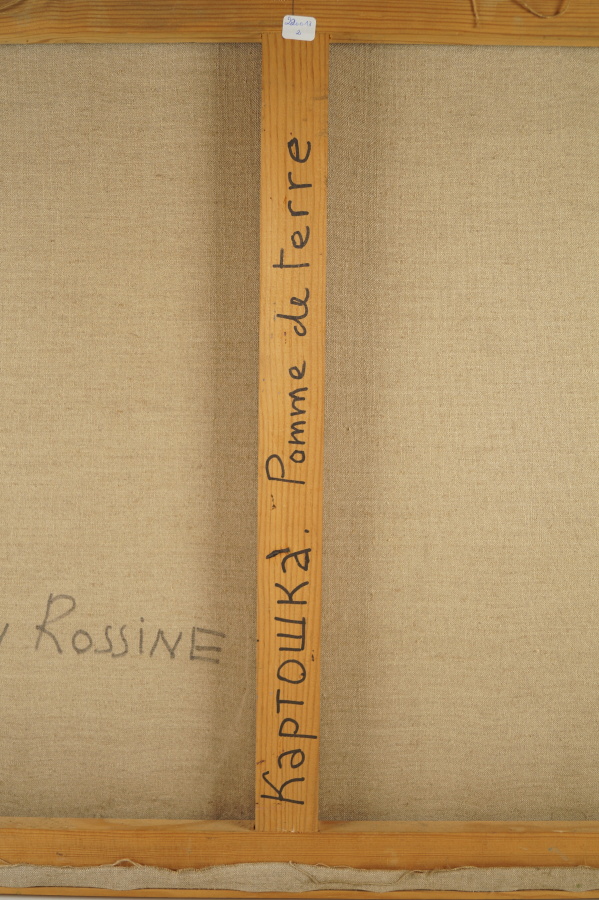 Картошка. Pomme de terre
Rossine